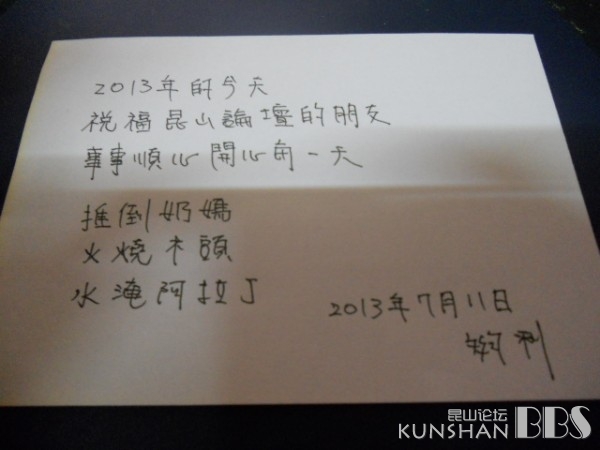 2013年的今天
祝福昆山論壇的朋友
事事順心開心每一天
推倒奶媽
火燒木頭
水淹阿拉丁
2013年7月11日
昆山论坛
KUNSHAN BBS